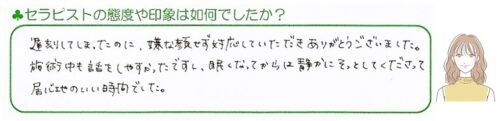 ♣セラピストの態度や印象は如何でしたか？
遅刻してしまったのに、嫌な顔せず対応していただきありがとうございました。
施術中も話をしやすかったですし、眠くなってからは静かにそっとしてくださって
居心地のいい時間でした。